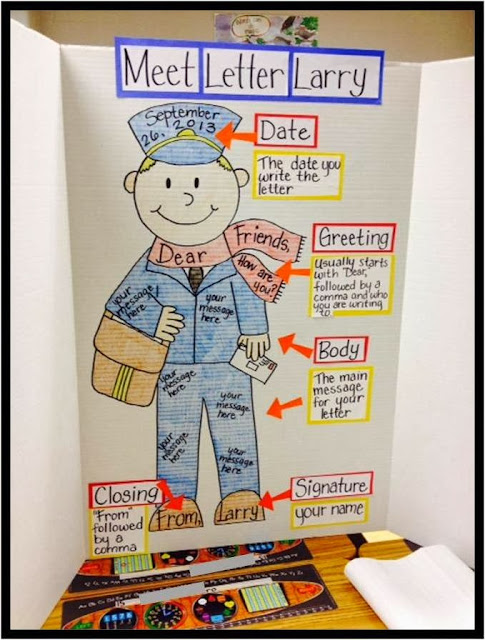 Meet Letter Larry
September
26, 2013
Date
The date you
write the
letter
Dear Friends,
How are
you?
Greeting
Usually starts
with "Dear,"
followed by a
comma and who
you are writing
to.
your
message
here!
your
message
here
Body
The main
message
for your
letter
your
message
here
your
message
here
your
message
here
your
message
here
Closing
"From"
followed
by a
comma
From,
Larry
Signature
your name